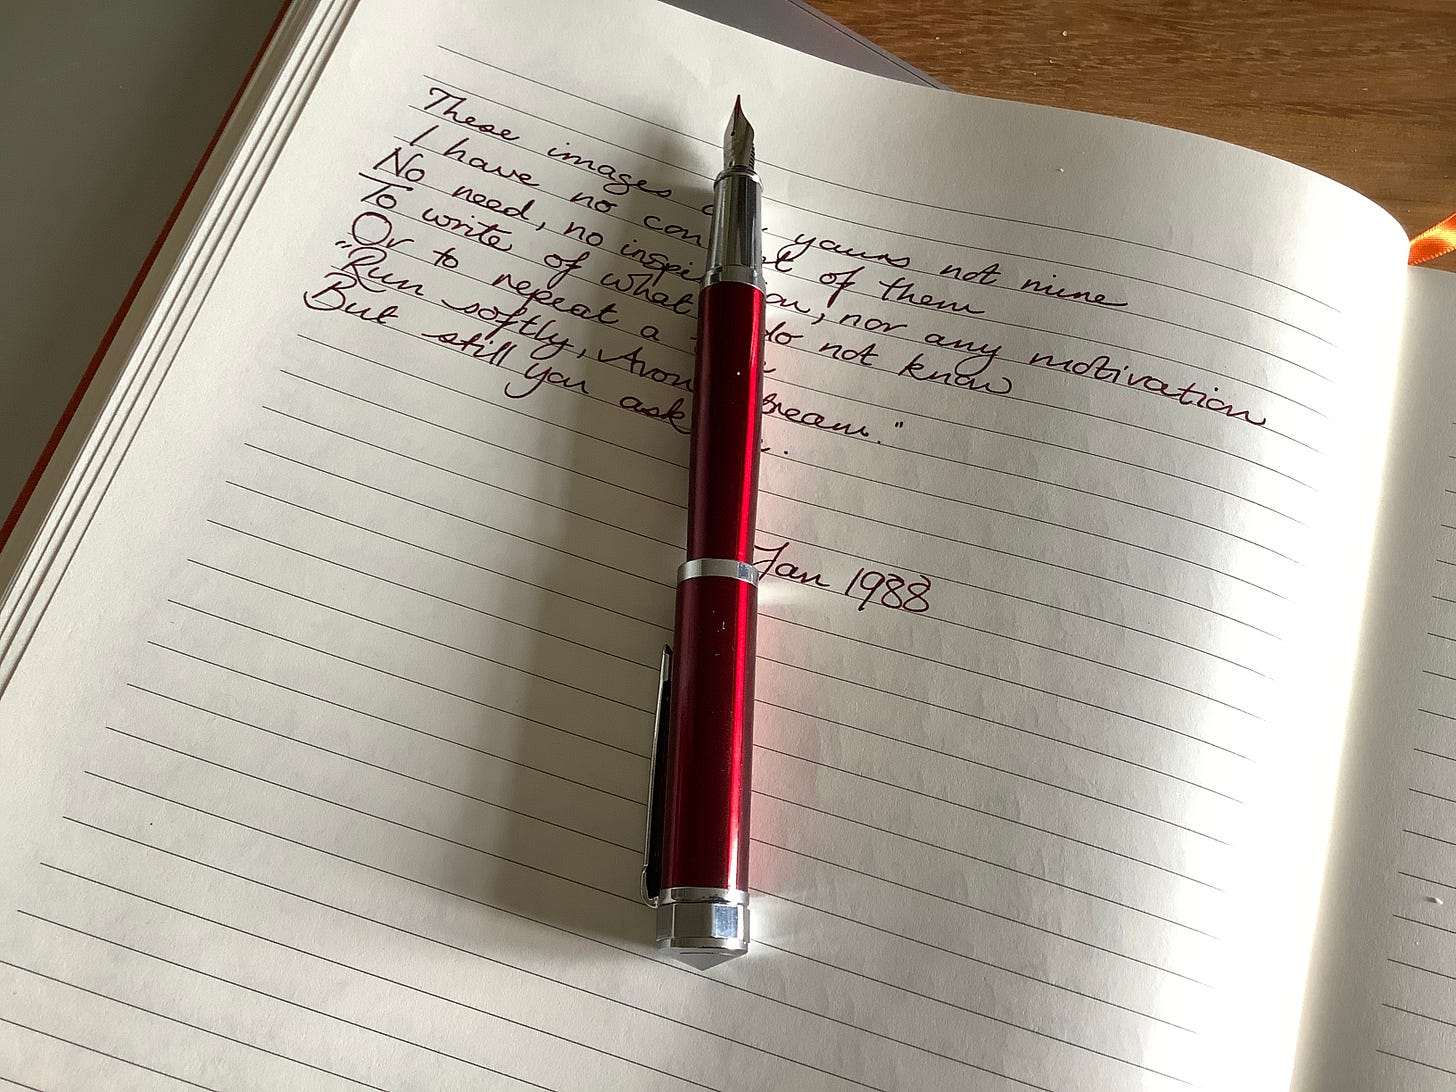 These images yours not mine
I have no of them
No need, no nor any motivation
To write of what do not know
Or to repeat a
"Run softly, Avon
But still you ask
Jan 1988